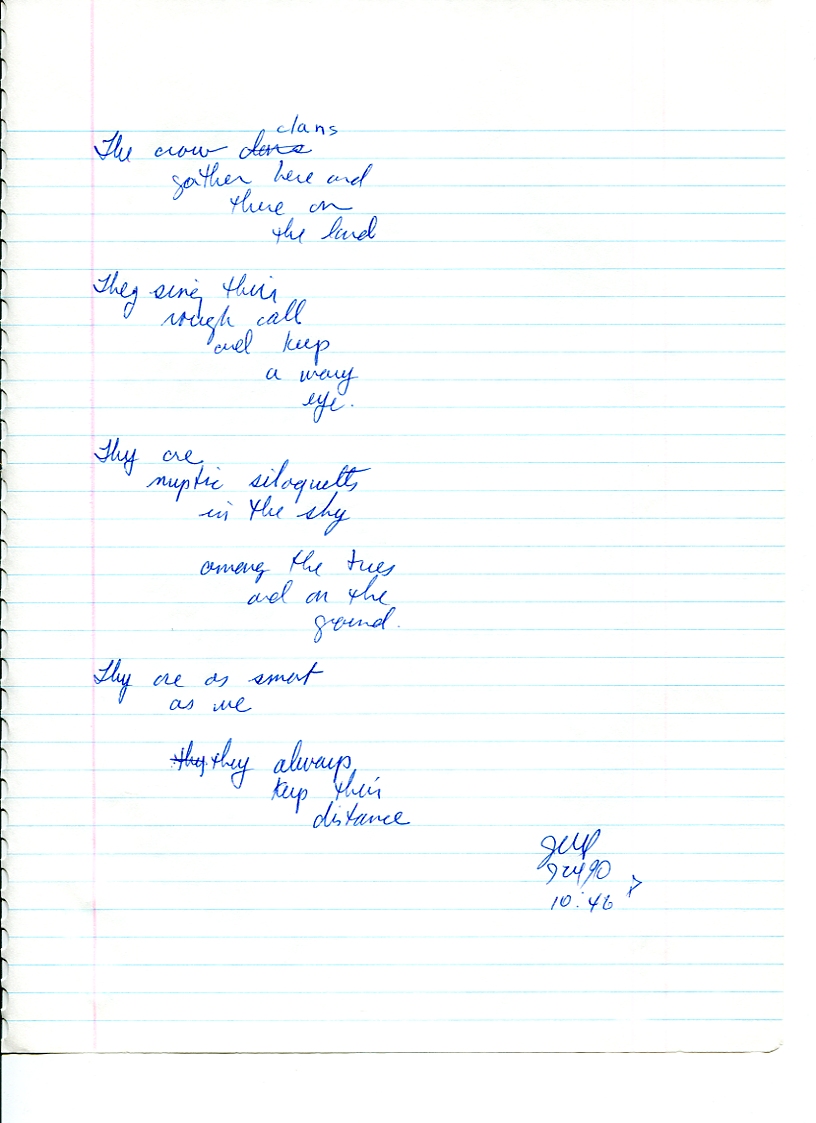 clans
The crow clans
gather here and
there on
the land
They sing their
rough call
and keep
a wary
eye.
They are
siloquetts
in the sky
among the trees
and on the
ground.
They are as smart
as we
they they always
keep their
distance
92490
10:46